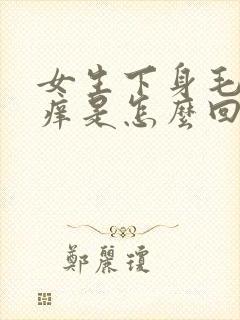 女生下身毛
痒是怎麼回
鄭麗瓊